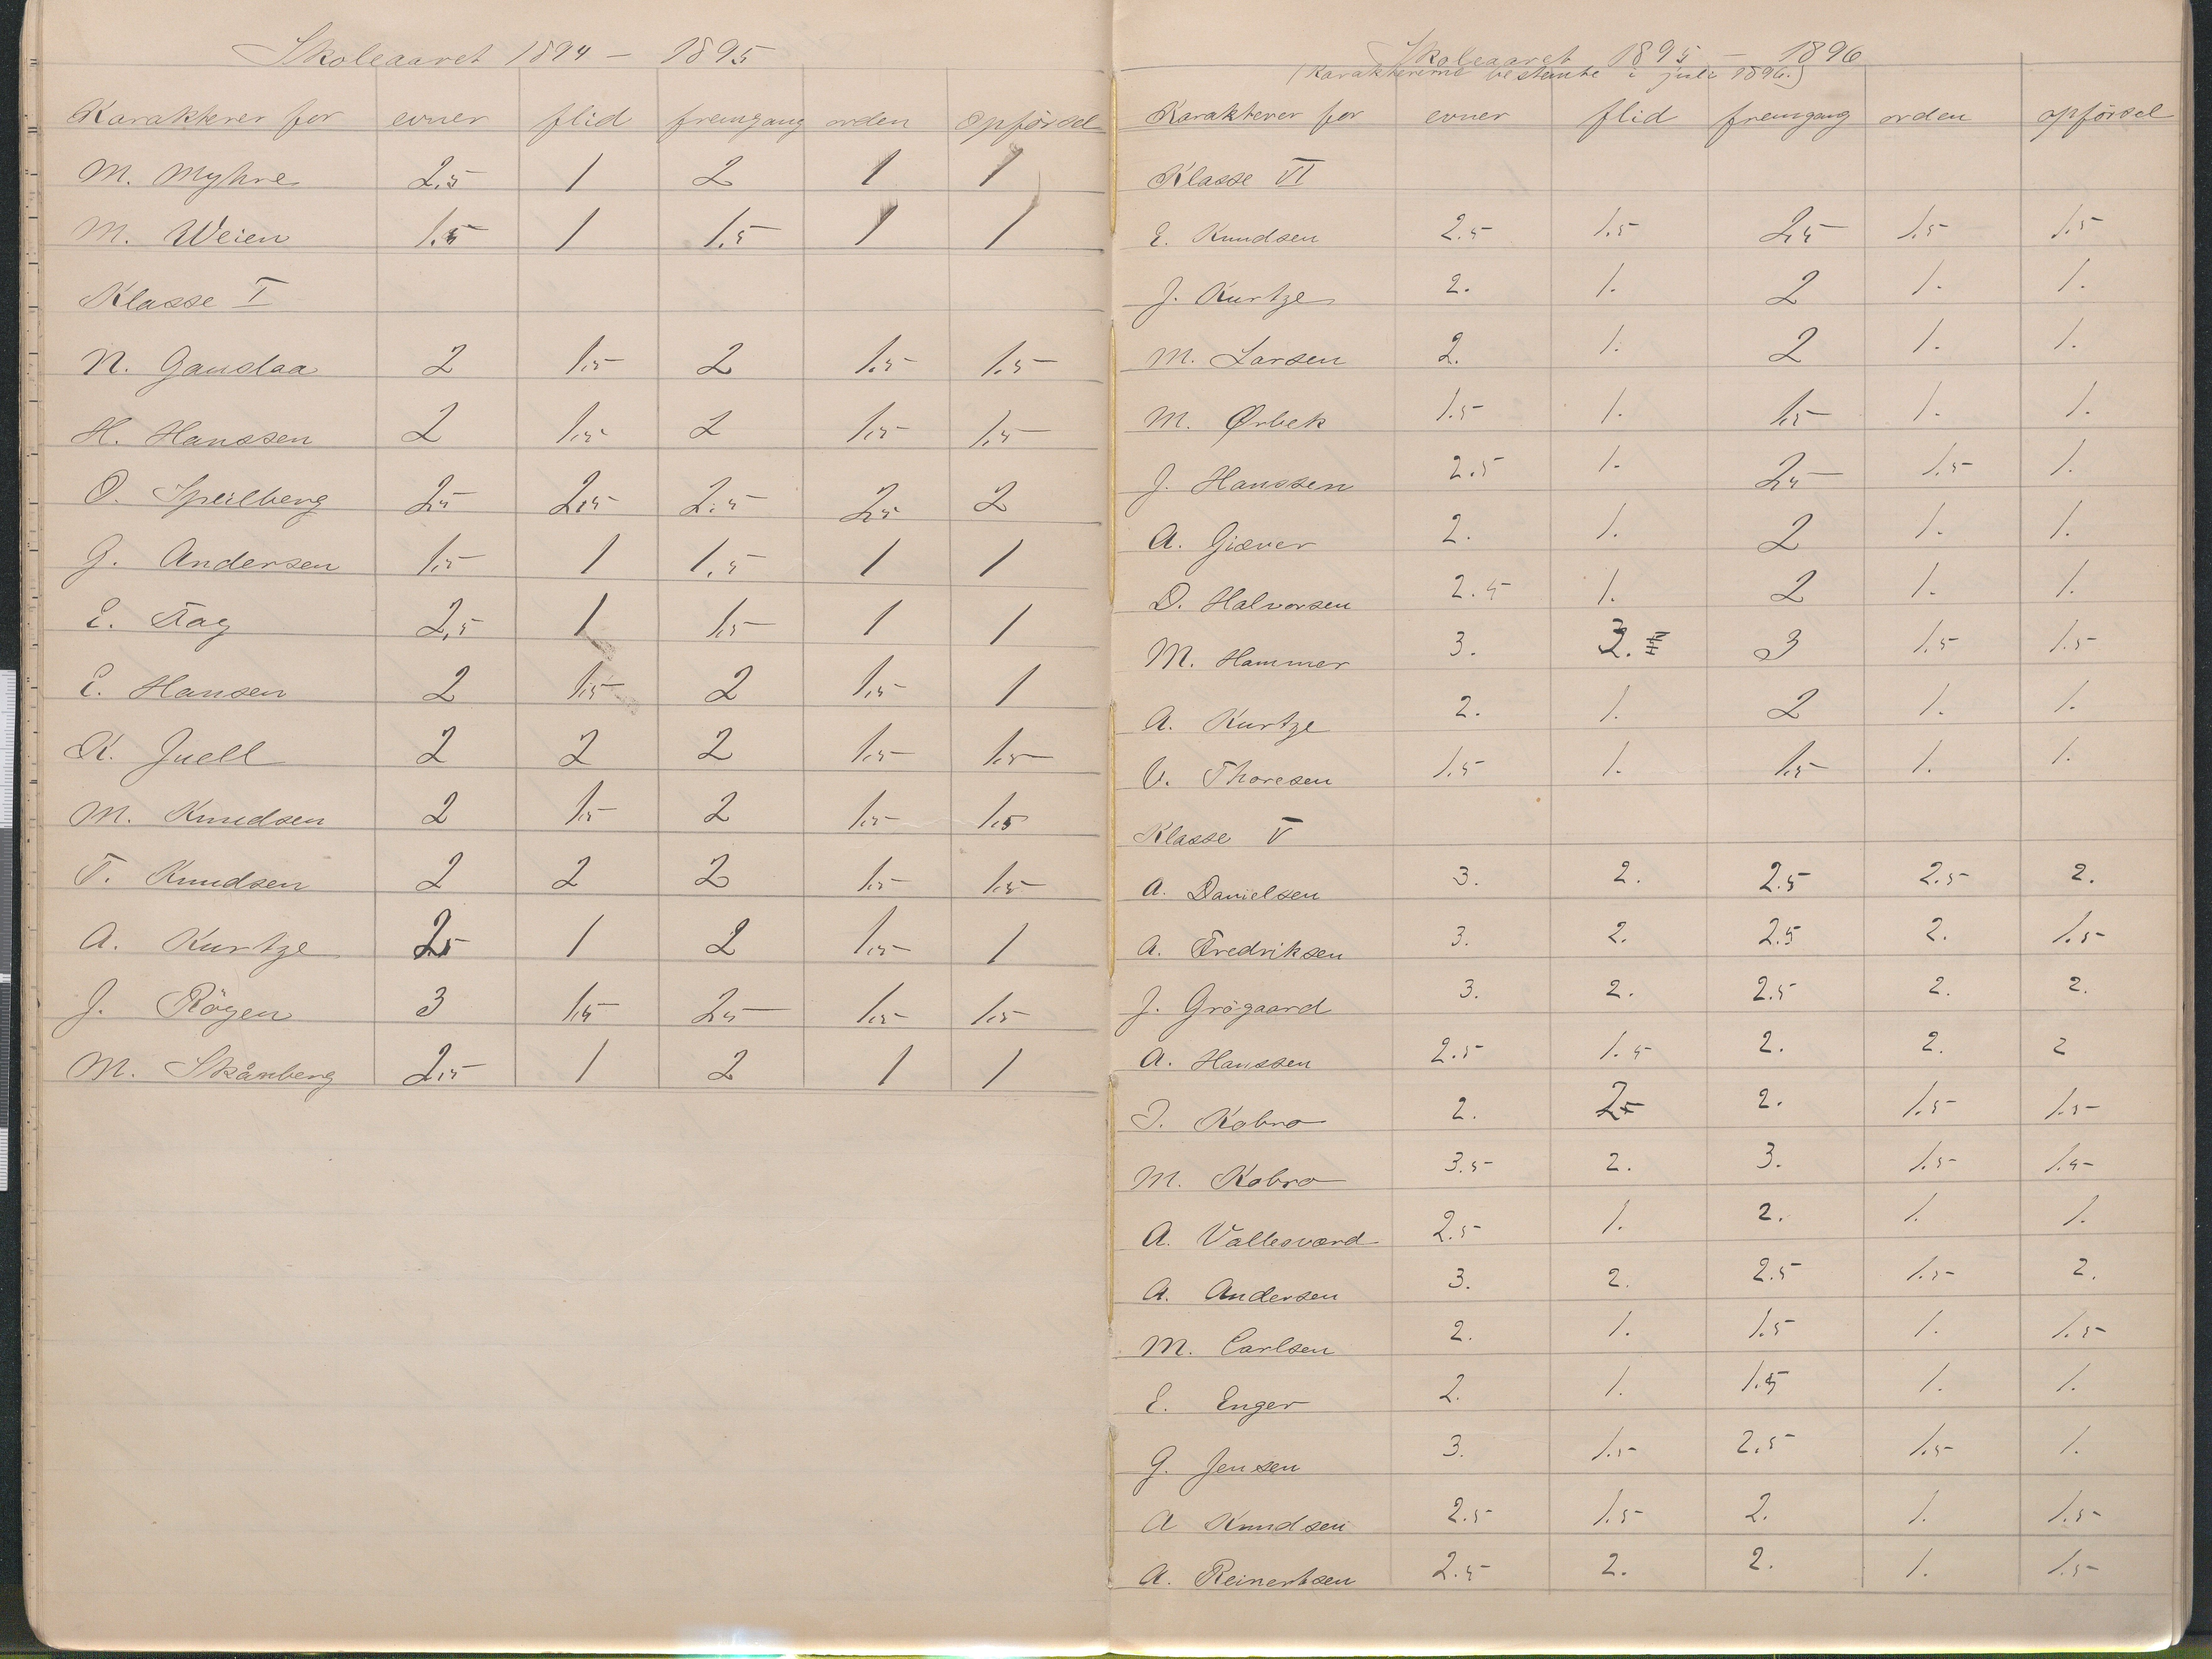 Skoleaaret 1894 — 1895
Karakterer for evner flid fremgang orden Opførsel
M. Myhre 2,5 1 2 1 1
M. Weien 1,5 1 1,5 1 1
Klasse I
N. Gauslaa 2 1,5 2 1,5 1,5
H. Hanssen 2 1,5 2 1,5 1,5
O. Speilberg 2,5 2,5 2,5 2,5 2
G. Andersen 1,5 1 1,5 1 1
E. Fag 2,5 1 1,5 1 1
E. Hansen 2 1,5 2 1,5 1
K. Juell 2 2 2 1,5 1,5
M. Knudsen 2 1,5 2 1,5 1,5
T. Knudsen 2 2 2 1,5 1,5
A. Kurtze 2,5 1 2 1,5 1
J. Röyen 3 1,5 2,5 1,5 1,5
M. Skånberg 2,5 1 2 1 1
Skoleaaret 1895 — 1896
(Karaktererne bestemte i juli 1896.)
Karakterer for evner flid fremgang orden opførsel
Klasse VI
E. Knudsen 2.5 1.5 2,5 1.5 1.5
J. Kurtze 2. 1. 2 1. 1.
M. Larsen 2. 1. 2 1. 1.
M. Ørbek 1.5 1. 1,5 1. 1.
J. Hanssen 2.5 1. 2,5 1.5 1.
A. Giæver 2. 1. 2 1. 1.
D. Halvorsen 2.5 1. 2 1. 1.
M. Hammer 3. 3 1.5 1.5
A. Kurtze 2. 1. 2 1. 1.
V. Thoresen 1.5 1. 1,5 1. 1.
Klasse V
A. Danielsen 3. 2. 2.5 2.5 2.
A. Fredriksen 3. 2. 2.5 2. 1.5
J. Grögaard 3. 2. 2.5 2. 2.
A. Hanssen 2.5 1.5 2. 2. 2
I. Kobro 2. 2. 1.5 1.5
M. Kobro 3.5 2. 3. 1.5 1.5
A. Vallesværd 2.5 1. 2. 1. 1.
A. Andersen 3. 2. 2.5 1.5 2.
M. Carlsen 2. 1. 1.5 1. 1.5
E. Enger 2. 1. 1.5 1. 1.
G. Jensen 3. 1.5 2.5 1.5 1.
A Knudsen 2.5 1.5 2. 1. 1.5
A. Reinertsen 2.5 2. 2. 1. 1.5